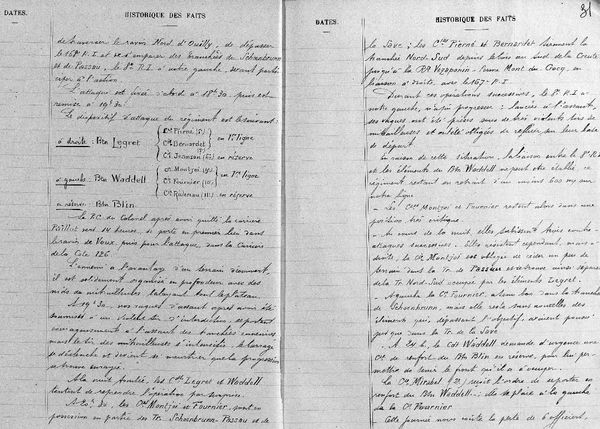 DATES.
HISTORIQUE DES FAITS
de traverser le ravin Nord d'Ouilly, de dépasser
le 168e R.I et de s'emparer des tranchées de Schonbrunn
et de Passau, le 8e R.I à notre gauche, devant parti-
ciper à l'action.
L'attaque est fixée d'abord à 18h30, puis est
remise à 19h30.
Le dispositif d'attaque du régiment est le suivant:
à droite: Btn Legret
Cie Pierné (5)
Cie Bernardet
Cie Jeanson (6) en réserve
en 1re ligne
à gauche: Btn Waddell
Cie Montjei (9)
Cie Fournier (10)
Cie Radenau (11) en réserve
en 1re ligne
en réserve: Btn Blin
Le P.C. du Colonel après avoir quitté la carrière
vers 14 heures, se porte en premier lieu dans
le ravin de Vaux, puis pour l'attaque, dans la Carrière
de la Cote 126.
L'ennemi a l'avantage d'un terrain découvert,
il est solidement organisé en profondeur avec des
nids de mitrailleuses balayant tout le plateau.
A 19h30, nos vagues d'assaut après avoir été
soumises à un violent tir d'interdiction se portent
courageusement à l'assaut des tranchées ennemies
mais le tir des mitrailleuses s'intensifie, le barrage
se déclenche et devient si meurtrier que la progression
se trouve enrayée.
A la nuit tombée, les Cdts Legret et Waddell
tentent de reprendre l'opération par surprise.
A 22h30, les Cies Montjei et Fournier, sont en
possession en partie des Tr. Schonbrunn-Passau et de
DATES.
HISTORIQUE DES FAITS
31
la Save; les Cies Pierné et Bernardet tiennent la
tranchée Nord-Sud depuis le bois au Sud de la Creute
jusqu'à la
liaison à droite, avec le 167e R.I.
Durant ces opérations successives, le 8e R.I à
notre gauche, n'a pu progresser: lancées à l'assaut,
ses vagues ont été prises sous de très violents tirs de
mitrailleuses et ont été obligées de refluer sur leur base
de départ.
En raison de cette situation, la liaison entre le 8e R.I
et les éléments du Btn Waddell ne peut être établie, ce
régiment restant en retrait d'un moins 600 m sur
notre ligne.
Les Cies Montjei et Fournier restent alors dans une
position très critique.
Au cours de la nuit, elles subissent trois contre-
attaques successives. Elles résistent cependant, mais à
droite, la Cie Montjei est obligée de céder un peu de
terrain dans la Tr. de Passau et se trouve ainsi séparée
de la Tr. Nord-Sud occupée par les éléments Legret.
A gauche la Cie Fournier, atteint bien dans la tranchée
de Schonbrunn, mais elle reste sans nouvelles des
éléments qui, dépassant l'objectif, avaient poussé
jusque dans la Tr. de la Save
A 24 h, le Cdt Waddell demande d'urgence une
Cie de renfort du Btn Blin en réserve, pour lui per-
mettre de tenir le front qu'il a à occuper.
La Cie Mirabel (2) reçoit l'ordre de se porter en
renfort du Btn Waddell; elle se place à la gauche
de la Cie Fournier
Cette journée nous coûte la perte de 6 officiers,